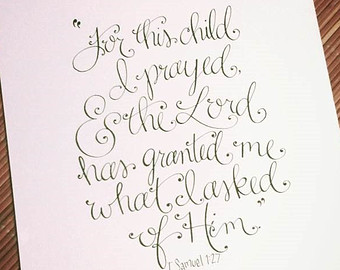 "For this child
I prayed,
& the Lord
has granted me
what I asked
of Him."
1 Samuel 1:27